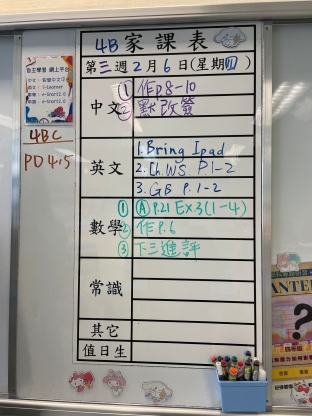 4B 家課表
第三週2月6日(星期四)
中文
① 作p8-10
② 默改簽
英文
1. Bring Ipad
2. Ch. WS P1-2
3. GB P.1-2
數學
① Ⓐ P.21 EX3(1-4)
② 作P.6
③ 下三進評
常識
其它
值日生
自主學習 網上平台
4BC
PD 4,5